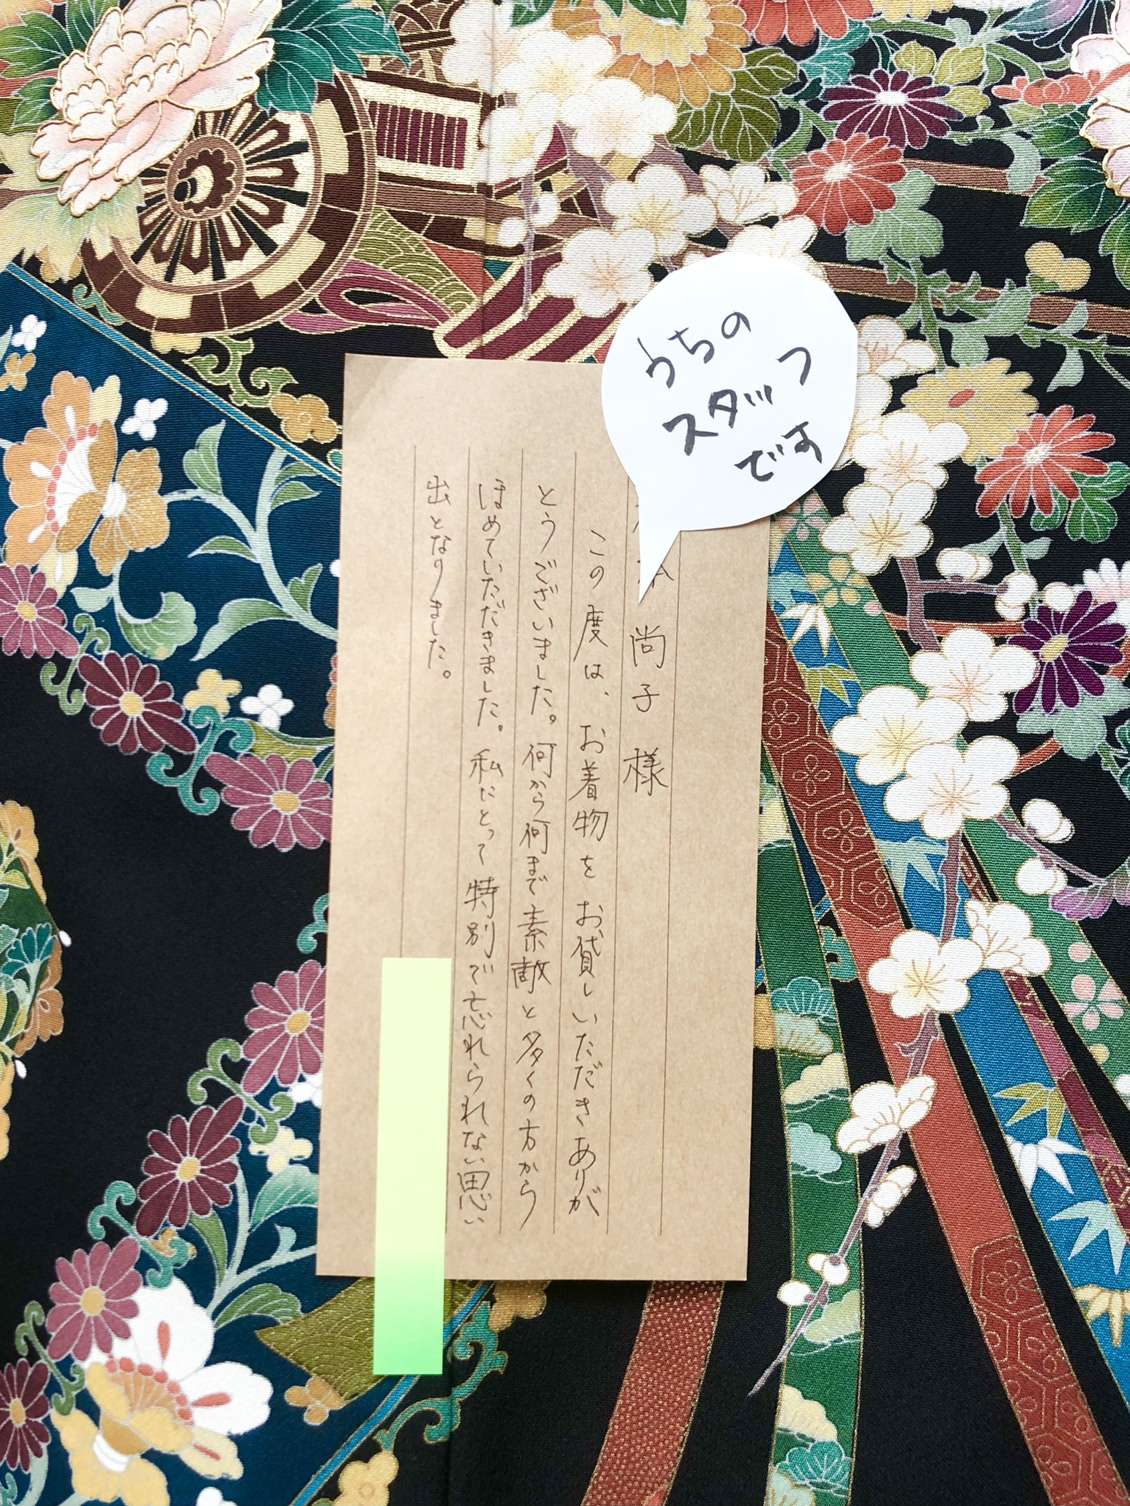 うちの
スタッフ
です
尚子様
この度は、お着物をお貸しいただきありが
とうございました。何から何まで素敵と多くの方から
ほめていただきました。私にとって特別で忘れられない思い
出となりました。